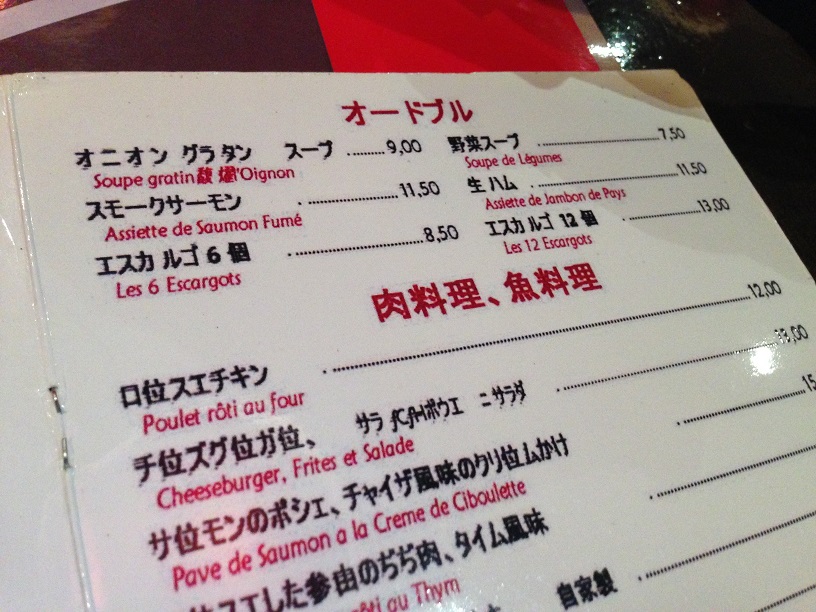 オードブル
オニオン グラタン スープ ........ 9,00
Soupe gratin馥 爛'Oignon
スモークサーモン ........ 11,50
Assiette de Saumon Fumé
エスカ ルゴ 6 個 ........ 8,50
Les 6 Escargots
野菜スープ ........ 7,50
Soupe de Légumes
生 ハム ........ 11,50
Assiette de Jambon de Pays
エスカ ルゴ 12 個 ........ 13,00
Les 12 Escargots
肉料理、魚料理
ロ位スエチキン ........ 12,00
Poulet rôti au four
チ位ズグ位ガ位、 サラ ボウエ ニサラダ ........ 13,00
Cheeseburger, Frites et Salade
サ位モンのポシェ、チャイザ風味のクリ位ムかけ ........ 15
Pave de Saumon a la Creme de Ciboulette
スエした参由のぢぢ肉、タイム風味
rôti au Thym
自家製